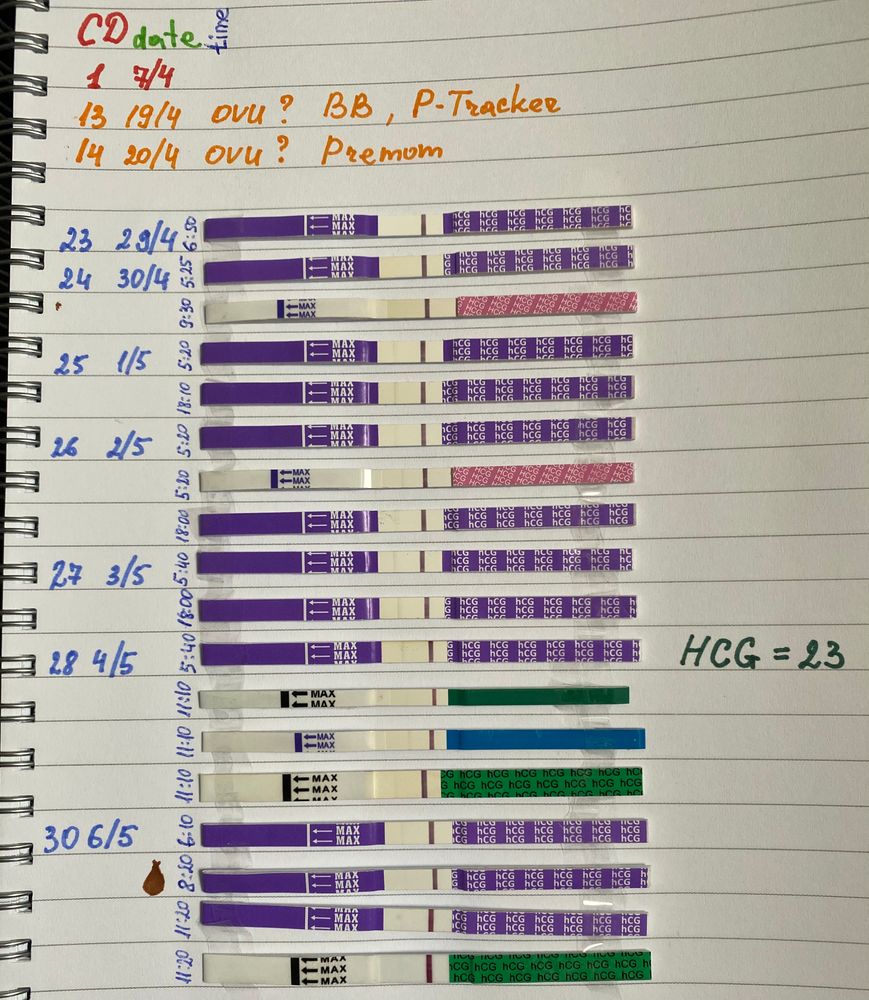 CD date time
1 7/4
13 19/4 ovu? BB, P-Tracker
14 20/4 ovu? Premom
23 29/4 6:50 MAX MAX hCG hCG hCG hCG hCG hCG
24 30/4 5:25 MAX MAX hCG hCG hCG hCG hCG hCG
9:30 MAX HCG HCG HCG HCG HCG
25 1/5 5:20 MAX MAX hCG hCG hCG hCG hCG hCG
18:10 MAX MAX hCG hCG hCG hCG hCG hCG
26 2/5 5:20 MAX MAX hCG hCG hCG hCG hCG hCG
5:20 MAX MAX HCG HCG HCG HCG HCG
18:00 MAX MAX hCG hCG hCG hCG hCG hCG
27 3/5 5:40 MAX MAX hCG hCG hCG hCG hCG hCG
18:00 MAX MAX hCG hCG hCG hCG hCG hCG
28 4/5 5:40 MAX MAX hCG hCG hCG hCG hCG hCG HCG = 23
11:10 MAX MAX
11:10 MAX MAX
11:10 MAX MAX MAX hCG hCG hCG hCG hCG hCG
30 6/5 6:10 MAX MAX hCG hCG hCG hCG hCG hCG
8:20 MAX MAX hCG hCG hCG hCG hCG hCG
11:20 MAX MAX hCG hCG hCG hCG hCG hCG
11:20 MAX MAX MAX hCG hCG hCG hCG hCG hCG